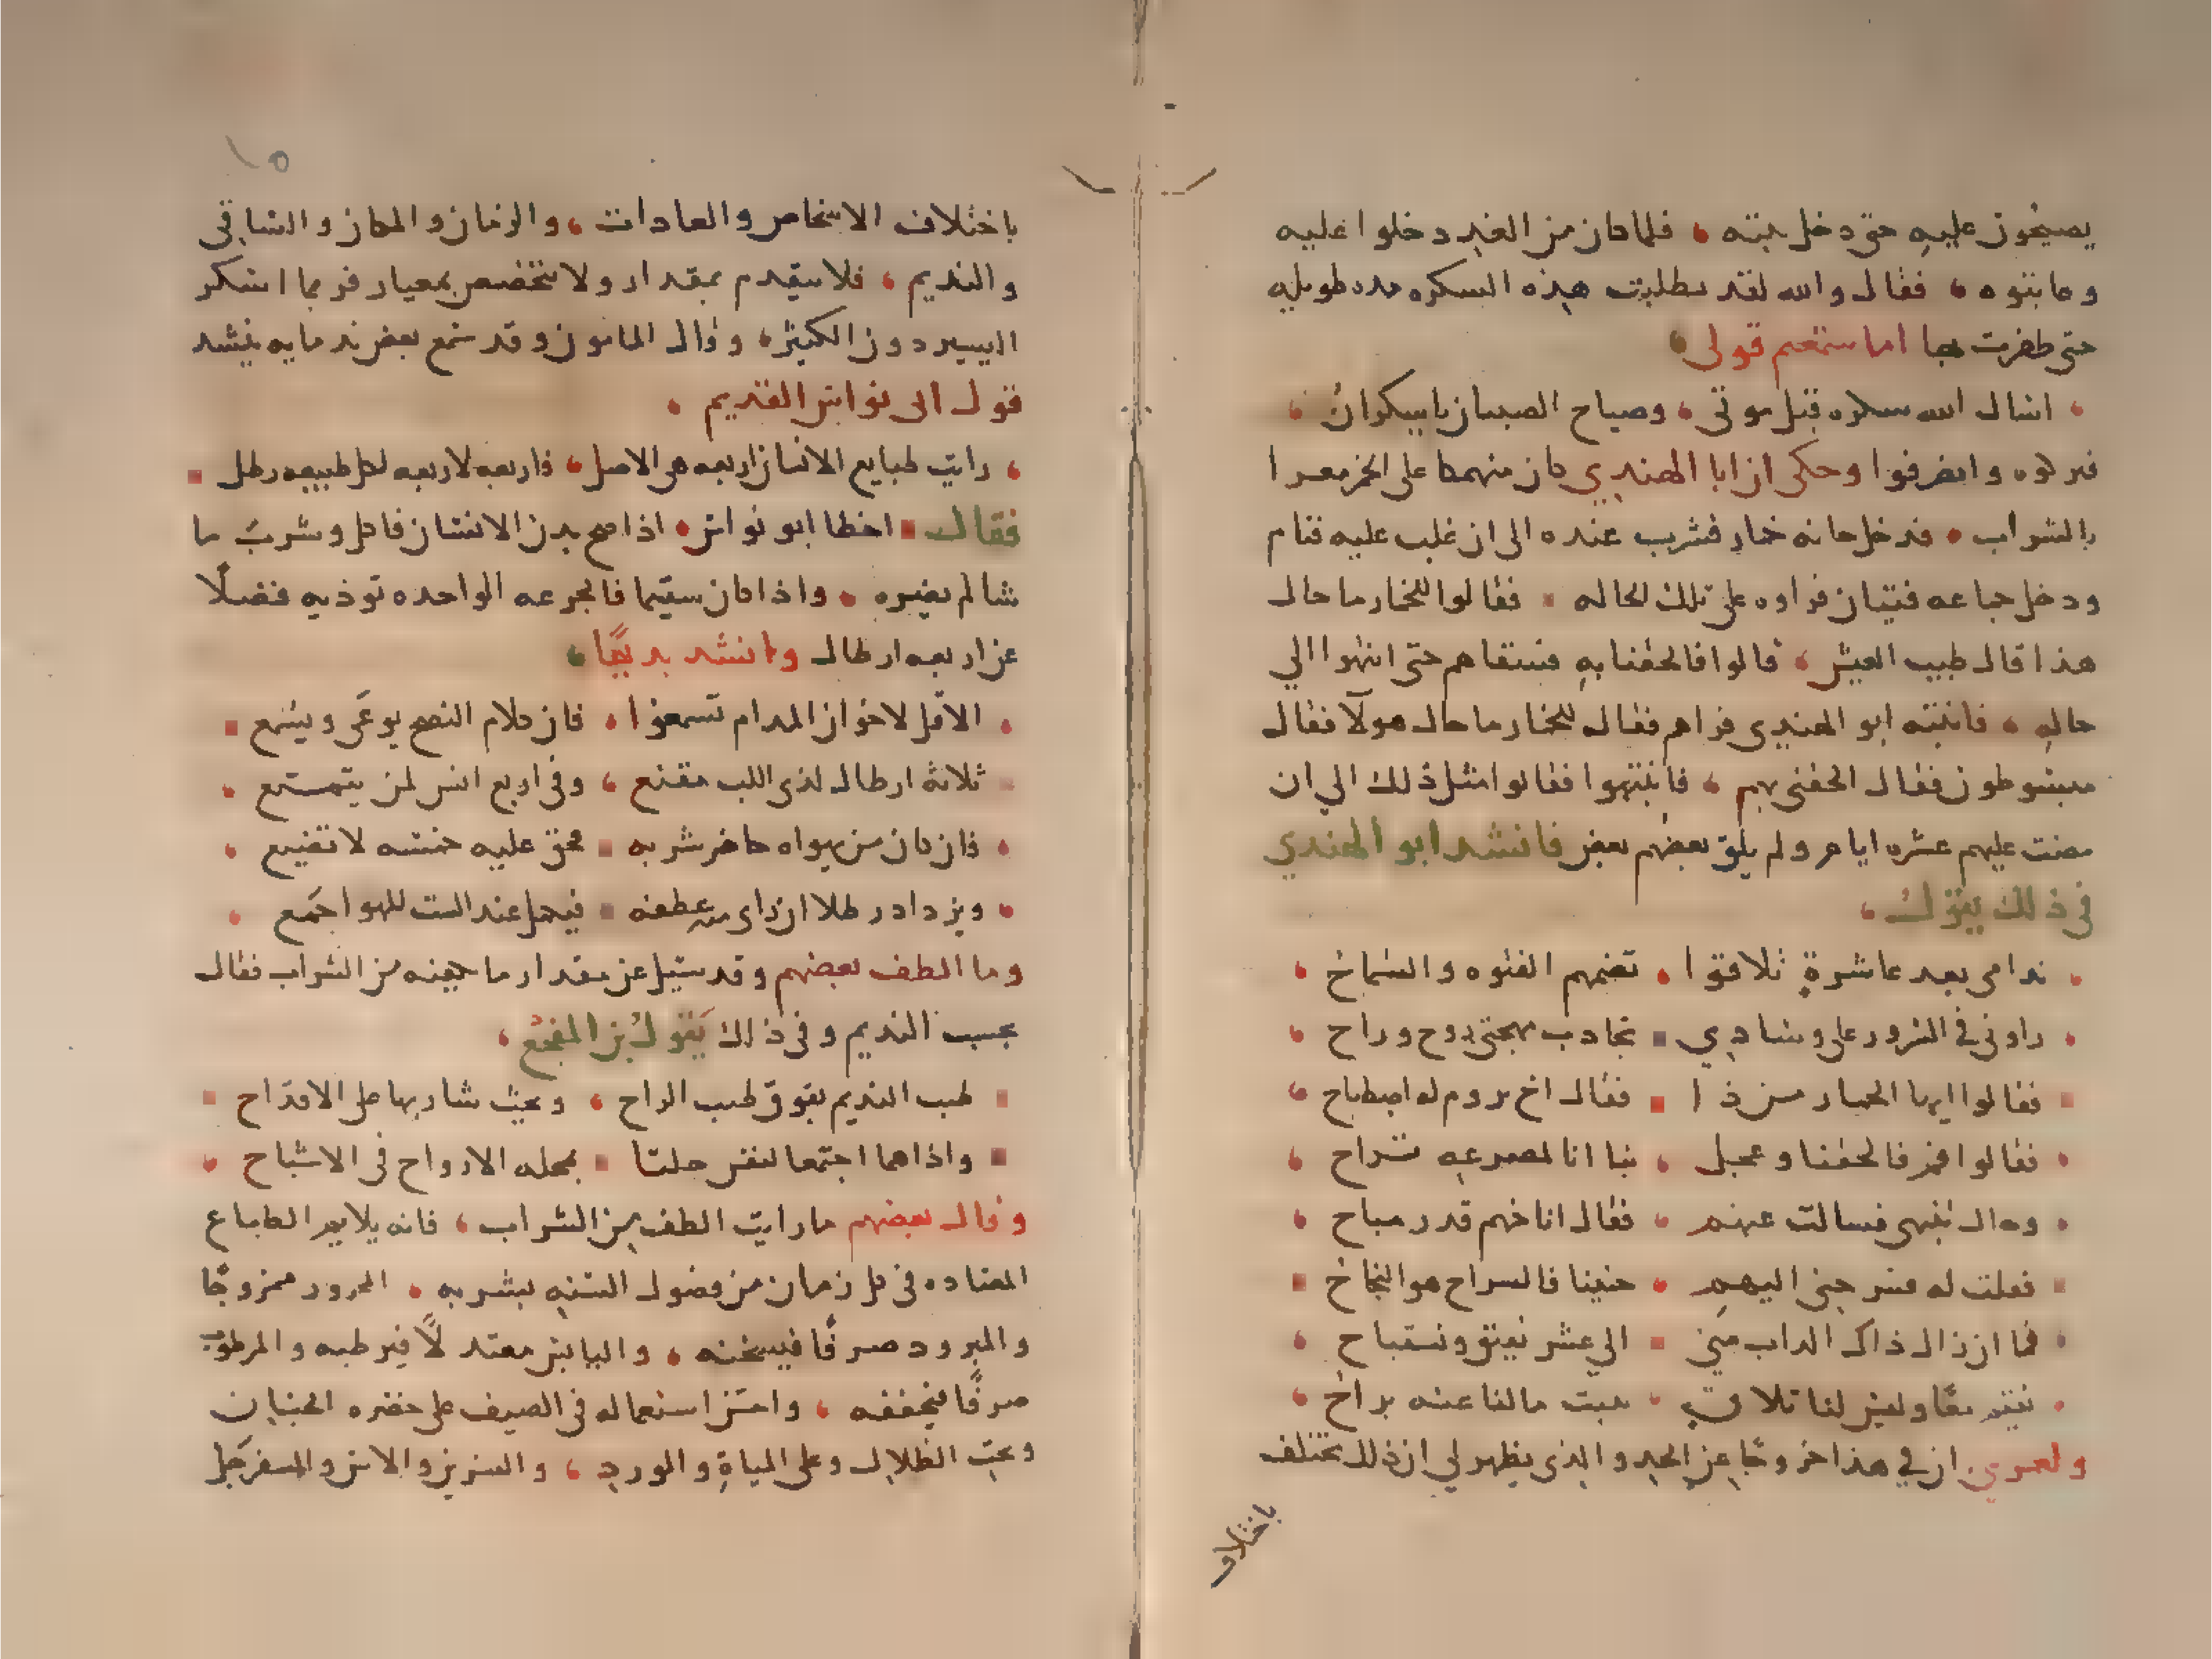 يصيحون عليه حتى دخل بيته ، فلما كان من الغد دخلوا عليه
وعاتبوه ، فقال والله لقد تطلبت هذه السكره مده طويله
حتى ظفرت بها اما سمعتم قولي
اسال الله سكره قبل موتي ، وصياح الصبيان يا سكران
فتركوه وانصرفوا وحكى ان ابا الهندي كان منهمكا على الخمر مغرا
بالشراب ، فدخل حانه خمار فشرب عنده الى ان غلب عليه فنام
ودخل جماعه فتيان فراوه على تلك الحاله فقالوا للخمار ما حال
هذا قال طيب العيش ، قالوا فالحقنا به فسقاهم حتى انتهوا الي
حاله ، فانتبه ابو الهندي فراهم فقال للخمار ما حال هولا فقال
مبسوطون فقال الحقني بهم ، فانتبهوا فقالوا مثل ذلك الي ان
مضت عليهم عشره ايام ولم يلق بعضهم بعض فانشد ابو الهندي
في ذلك يقول ،
ندامى بعد عاشرة تلاقوا ، تضمهم الفتوه والسماح
راوني في السرور على وسادي تجادب مهجتي روح وراح
فقالوا ايها الخمار من ذا فقال اخ يروم له اصطباح
فقالوا قم فالحقنا وعجل ، بنا انا لمصرعه نراح
وحال تنبهي فسالت عنهم ، فقال اتاحهم قدر مباح
فقلت له فسرحني اليهم ، حثيثا فالسراح هو النجاح
فما ان زال ذاك الداب مني الي عشر نفيق ونستباح
نقيم معا وليس لنا تلاق ، ببيت ما لنا عنه براح
ولعمري ان في هذا خروجا عن الحد والذي يظهر لي ان ذلك يختلف
باختلاف
١٥
باختلاف الاشخاص والعادات ، والزمان والمكان والساقي
والنديم ، فلا يتقدم بمقدار ولا يتخصص بمعيار فربما اسكر
اليسير دون الكثير ، وقال المامون وقد سمع بعض ندمايه ينشد
قول ابي نواس القديم ،
رايت طبايع الانسان اربعه هي الاصل ، فاربعه لاربعه لكل طبيعه رطل
فقال اخطا ابو نواس ، اذا صح بدن الانسان فاكل وشرب ما
شا لم يضره ، واذا كان سقيما فالجرعه الواحده توذيه فضلًا
عن اربعه ارطال وانشد بديهًا ،
الا قل لاخوان المدام تسمعوا ، فان كلام النصح يوعى ويسمع
ثلاثة ارطال لذي اللب مقنع ، وفي اربع انس لمن يتمستع ،
فان كان من يهواه حاضر شربه فحق عليه خمسه لا تضيع ،
ويزداد رطلا ان راى منه عطفه فيحمل عند الست للهو اجمع ،
وما الطف بعضهم وقد سيل عن مقدار ما يجيه من الشراب فقال
بحسب النديم وفي ذلك يقول بن المفجع ،
طيب النديم يفوق طيب الراح ، ويحث شاربها على الاقداح
واذا هما اجتمعا لنفس حلتا بمحله الارواح في الاشباح ،
وقال بعضهم ما رايت الطف من الشراب ، فانه يلايم الطباع
المضاده في كل زمان من فصول السنه بشربه ، المحرور ممزوجًا
والمبرود صرفًا فيسخنه ، واليابس معتدلًا فيرطبه والمرطوب
صرفًا فيجففه ، واحسن استعماله في الصيف على خضره الجنان
وتحت الظلال وعلى المياة والورد ، والنسرين والاس والسفرجل